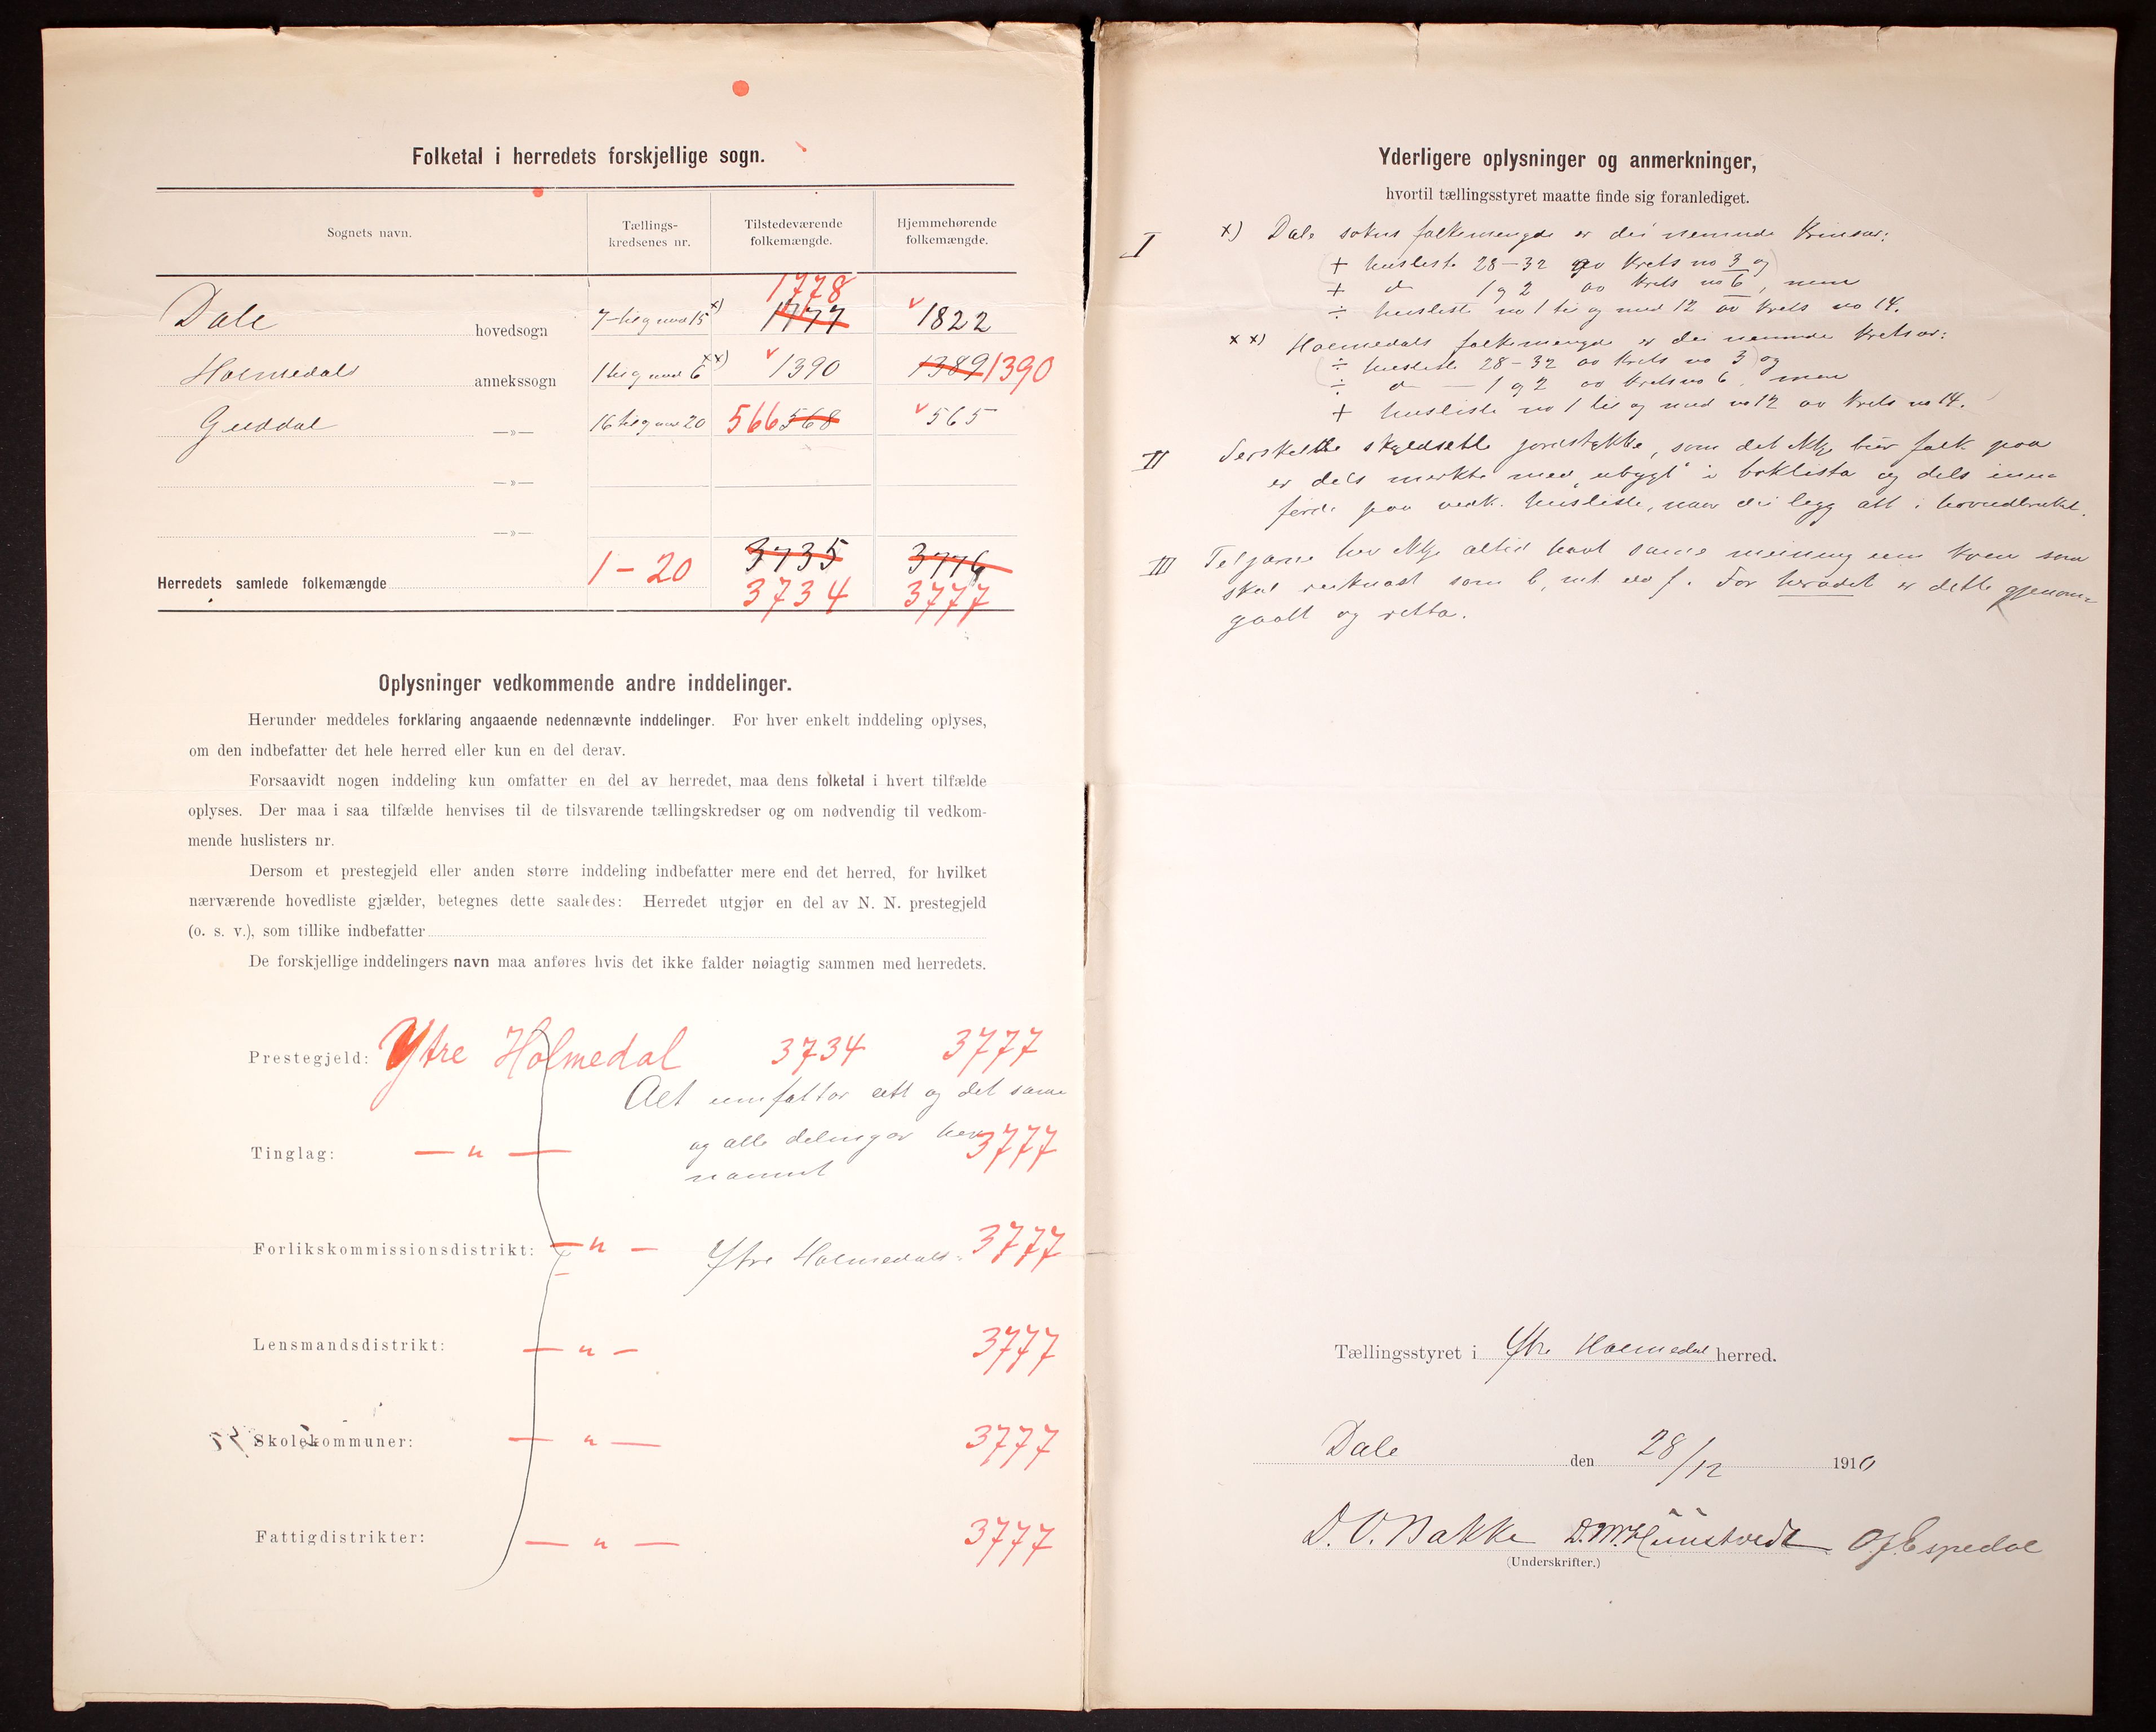 Folketal i herredets forskjellige sogn.
Sognets navn.
Tællings-
kredsenes nr.
Tilstedeværende
folkemængde.
Hjemmehørende
folkemængde.
1778
Dale hovedsogn 7 til og med 15 x) 1777 1822
Holmedals annekssogn 1 til og med 6 xx) 1390 1389 1390
Guddal —»— 16 til og med 20 566 568 565
—»—
—»—
Herredets samlede folkemængde 1-20 3735 3776
3734 3777
Oplysninger vedkommende andre inddelinger.
Herunder meddeles forklaring angaaende nedennævnte inddelinger. For hver enkelt inddeling oplyses,
om den indbefatter det hele herred eller kun en del derav.
Forsaavidt nogen inddeling kun omfatter en del av herredet, maa dens folketal i hvert tilfælde
oplyses. Der maa i saa tilfælde henvises til de tilsvarende tællingskredser og om nødvendig til vedkom-
mende huslisters nr.
Dersom et prestegjeld eller anden større inddeling indbefatter mere end det herred, for hvilket
nærværende hovedliste gjælder, betegnes dette saaledes: Herredet utgjør en del av N. N. prestegjeld
(o. s. v.), som tillike indbefatter
De forskjellige inddelingers navn maa anføres hvis det ikke falder nøiagtig sammen med herredets.
Prestegjeld: Ytre Holmedal 3734 3777
Alt umfattar ett og det same
Tinglag: — " — og alle delingar her 3777
namnt
Forlikskommissionsdistrikt: — " — Ytre Holmedals 3777
Lensmandsdistrikt: — " — 3777
Skolekommuner: — " — 3777
Fattigdistrikter: — " — 3777
Yderligere oplysninger og anmerkninger,
hvortil tællingsstyret maatte finde sig foranlediget.
I x) Dale sokns folkemengde er dei nemnde krinsar:
+ husliste 28-32 av krets no 3 og
+ d 1 og 2 av krets no 6, men
÷ husliste no 1 til og med 12 av krets no 14.
xx) Holmedals folkemengde er dei nemnde kretsar:
÷ husliste 28-32 av krets no 3 og
÷ d — 1 og 2 av krets no 6, men
+ husliste no 1 til og med no 12 av krets no 14.
II Serskilte skyldsette jordstykke, som det ikkje bur folk paa
er dels merkte med "ubygt" i boklista og dels inn-
førde paa vedk. husliste, naar dei legg att i hovudbruket.
III Teljarane hev ikkje altid havt same meining um kven som
skal reknast som b, mt eld f. For heradet er dette gjenom-
gaatt og retta.
Tællingsstyret i Ytre Holmedal herred.
Dale den 28/12 1910
D. O. Bakke D. M. Hunstvedt O. J. Espedal
(Underskrifter.)